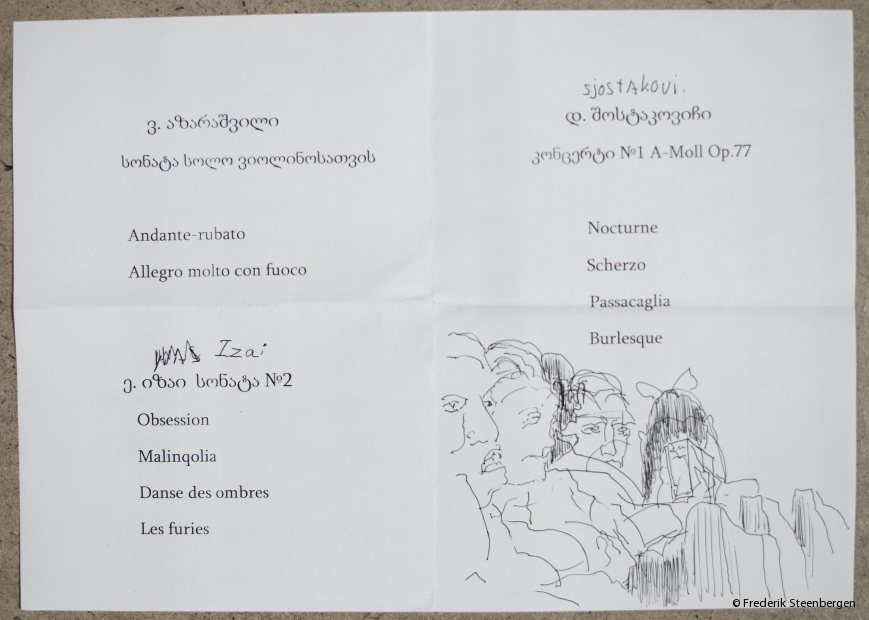 ვ. აზარაშვილი
სონატა სოლო ვიოლინოსათვის
Andante-rubato
Allegro molto con fuoco
Izai
ე. იზაი სონატა №2
Obsession
Malinqolia
Danse des ombres
Les furies
sjostakovi.
დ. შოსტაკოვიჩი
კონცერტი №1 A-Moll Op.77
Nocturne
Scherzo
Passacaglia
Burlesque
© Frederik Steenbergen